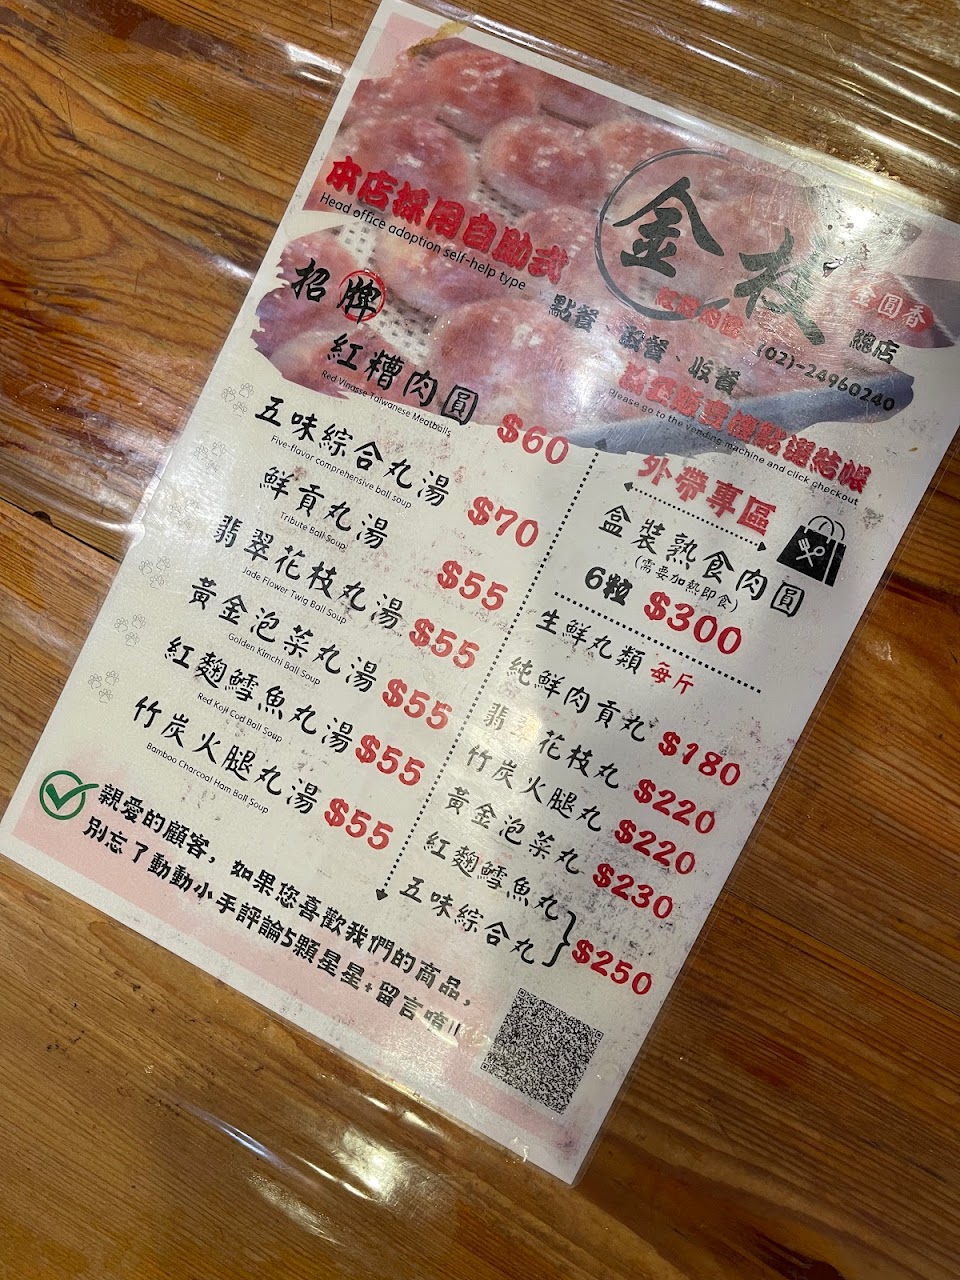 本店採用自助式
Head office adoption self-help type
金枝
金圓香
總店
點餐、取餐、收餐
(02)-24960240
Please go to the vending machine and click checkout
招牌
紅糟肉圓
Red Vinasse Taiwanese Meatballs
$60
五味綜合丸湯
Five-flavor comprehensive ball soup
$70
鮮貢丸湯
Tribute Ball Soup
$55
翡翠花枝丸湯
Jade Flower Twig Ball Soup
$55
黃金泡菜丸湯
Golden Kimchi Ball Soup
$55
紅麴鱈魚丸湯
Red Koji Cod Ball Soup
$55
竹炭火腿丸湯
Bamboo Charcoal Ham Ball Soup
$55
外帶專區
盒裝熟食肉圓
(需要加熱即食)
6粒 $300
生鮮丸類 每斤
純鮮肉貢丸 $180
翡翠花枝丸 $220
竹炭火腿丸 $220
黃金泡菜丸 $230
紅麴鱈魚丸
五味綜合丸
$250
親愛的顧客，如果您喜歡我們的商品，
別忘了動動小手評論5顆星星+留言唷!!